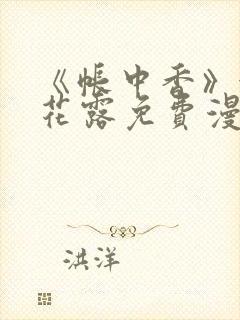 《帐中香》
花露免費漫
洪洋